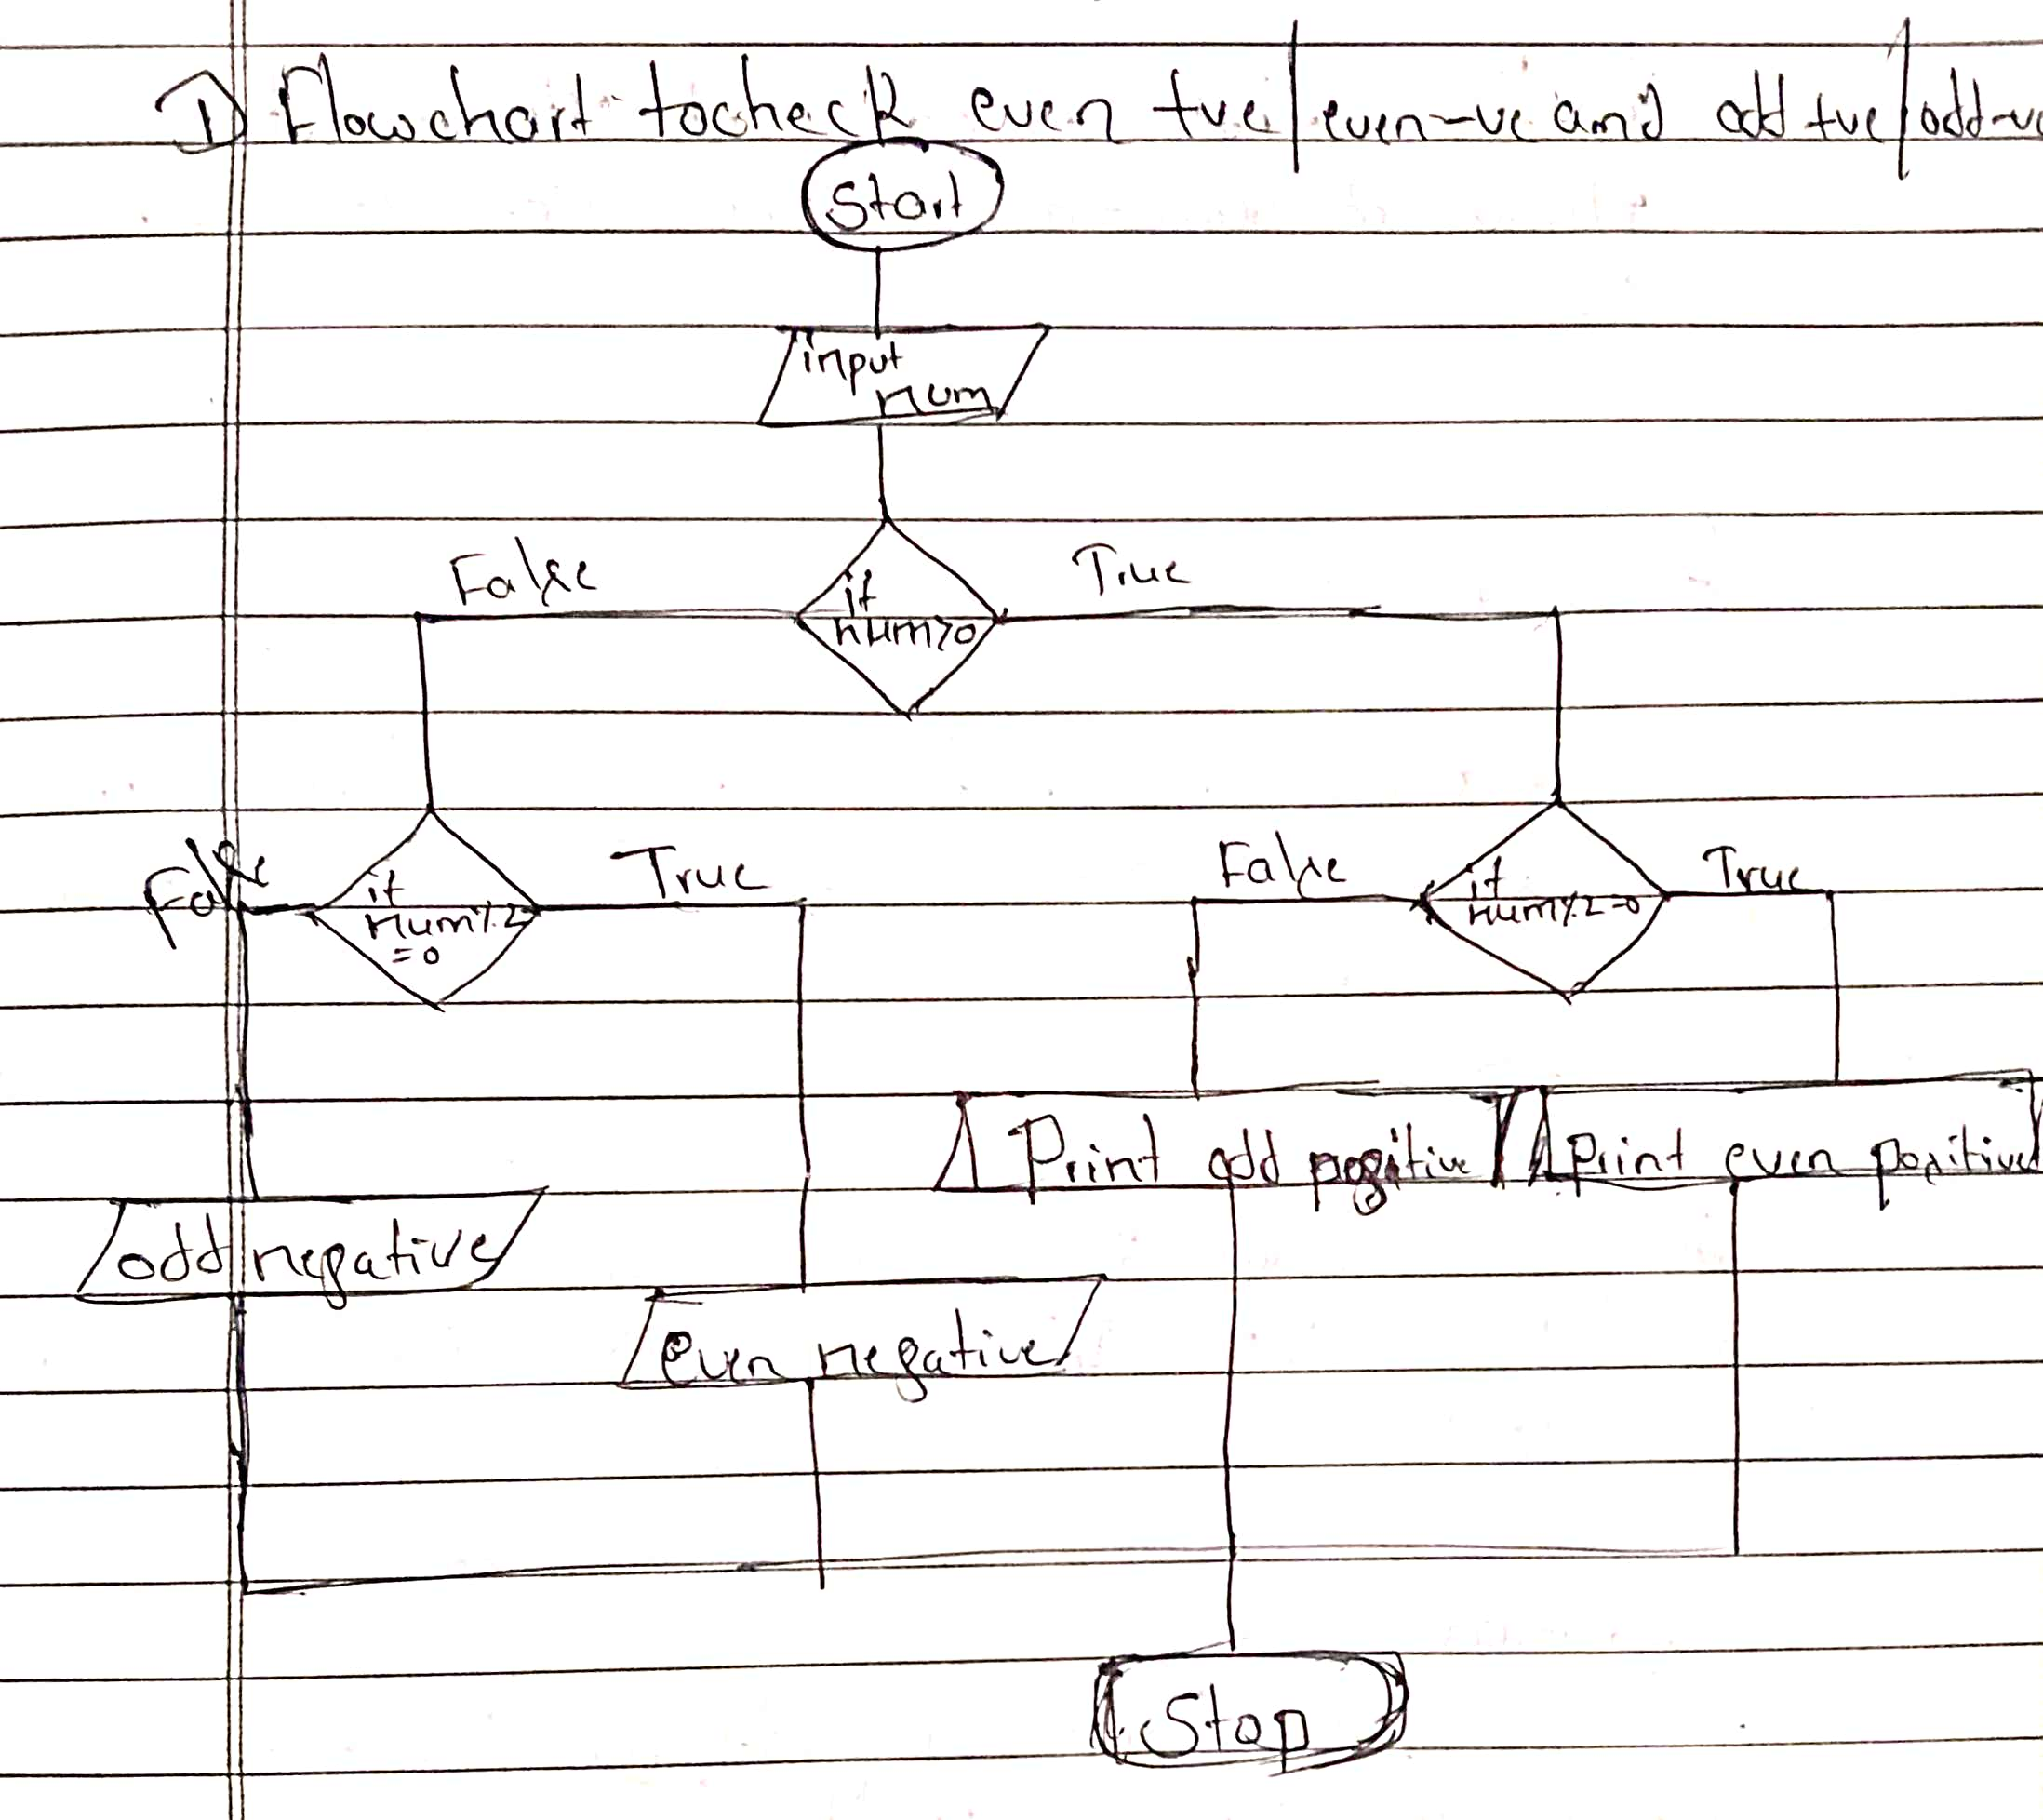 1) Flowchart tocheck even +ve/even-ve and odd +ve/odd-ve
Start
input
num
False
True
if
num>0
False
if
num%2
=0
True
False
if
num%2=0
True
Print odd positive
Print even positive
odd negative
even negative
Stop